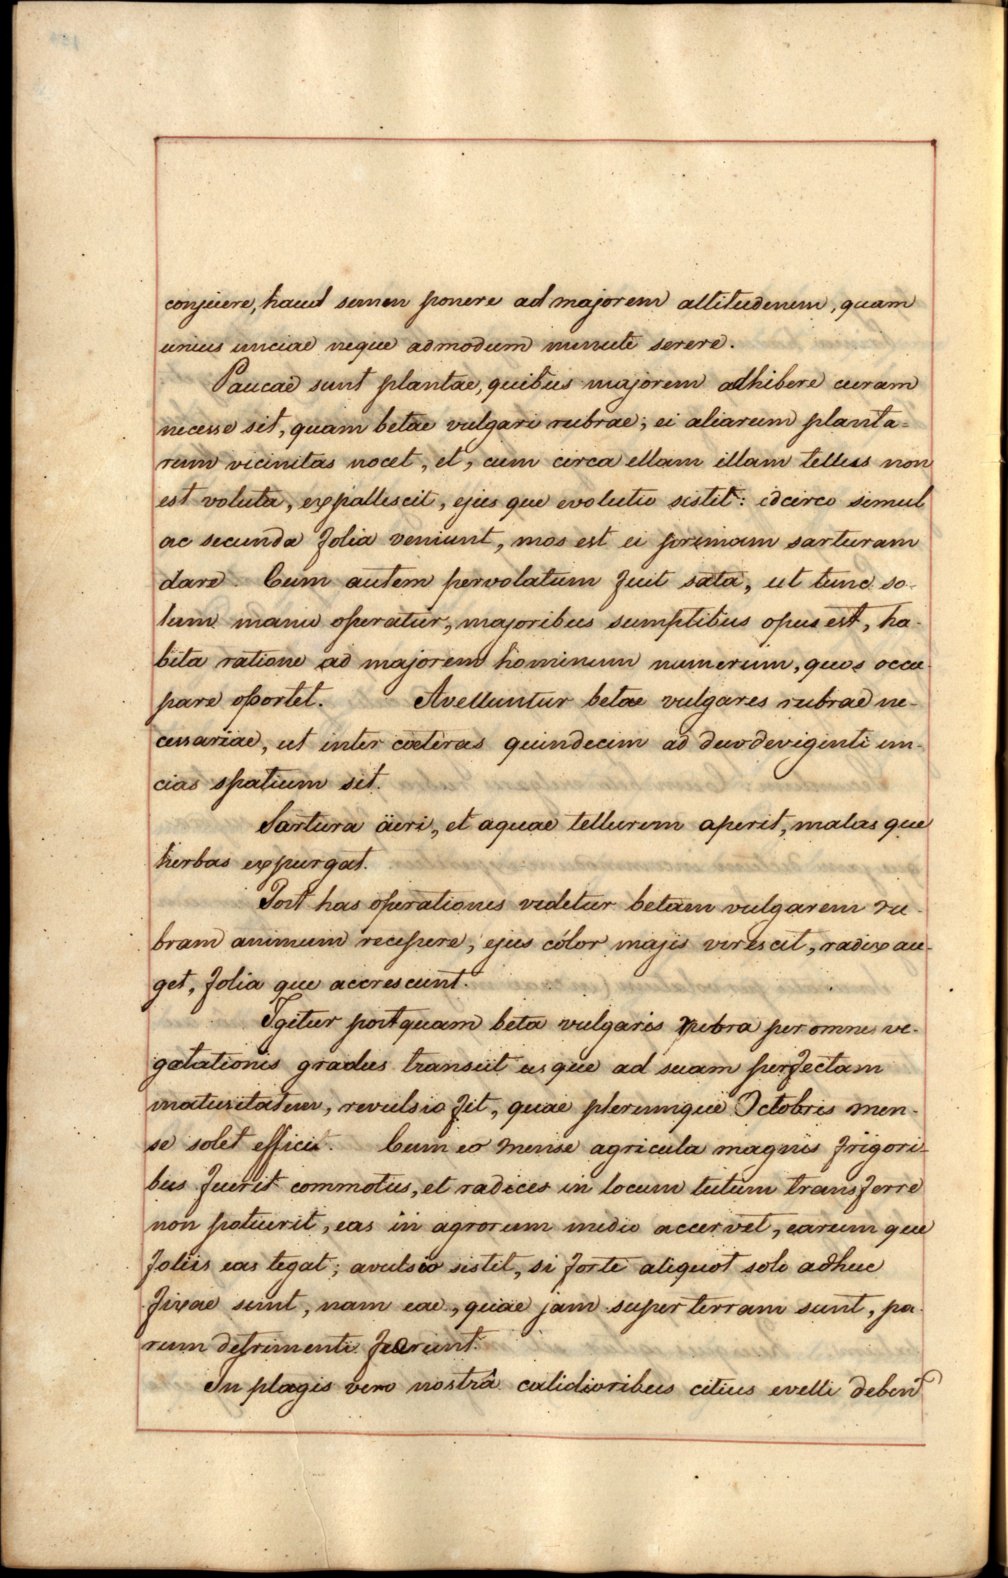 conjicere, haud semen ponere ad majorem altitudenem, quam
unius unciae neque admodum minute serere.
Paucae sunt plantae, quibus majorem adhibere curam
necesse sit, quam betae vulgari rubrae; ei aliarum planta=
rum vicinitas nocet, et, cum circa ellam illam tellus non
est voluta, expallescit, ejus que evolutio sistit: idcirco simul
ac secunda folia veniunt, mos est ei primam sarturam
dare. Cum autem pervolatum fuit sata, ut tunc so-
lum manu operatur, majoribus sumptibus opus est, ha-
bita ratione ad majorem hominum numerum, quos occu-
pare oportet. Avelluntur betae vulgares rubrae ne-
cessariae, ut inter coeteras quindecim ad duodeviginti un-
cias spatium sit.
Sartura äeri, et aquae tellurem aperit, malas que
herbas expurgat.
Post has operationes videtur betam vulgarem ru-
bram animum recipere, ejus cólor majis virescit, radix au-
get, folia que accrescunt.
Igitur postquam beta vulgaris rubra per omnes ve-
gatationis gradus transiit usque ad suam perfectam
maturitatem, revulsio fit, quae plerumque Octobris men-
se solet effici. Cum eo mense agricula magnis frigori-
bus fuerit commotus, et radices in locum tutum transferre
non potuerit, eas in agrorum medio accervet, earum que
foliis eas tegat; avulsio sistit, si forte aliquot solo adhuc
fixae sunt, nam eae, quae jam super terram sunt, pa-
rum detrimenti ferunt.
In plagis vero nostrâ calidioribus citius evelli debent